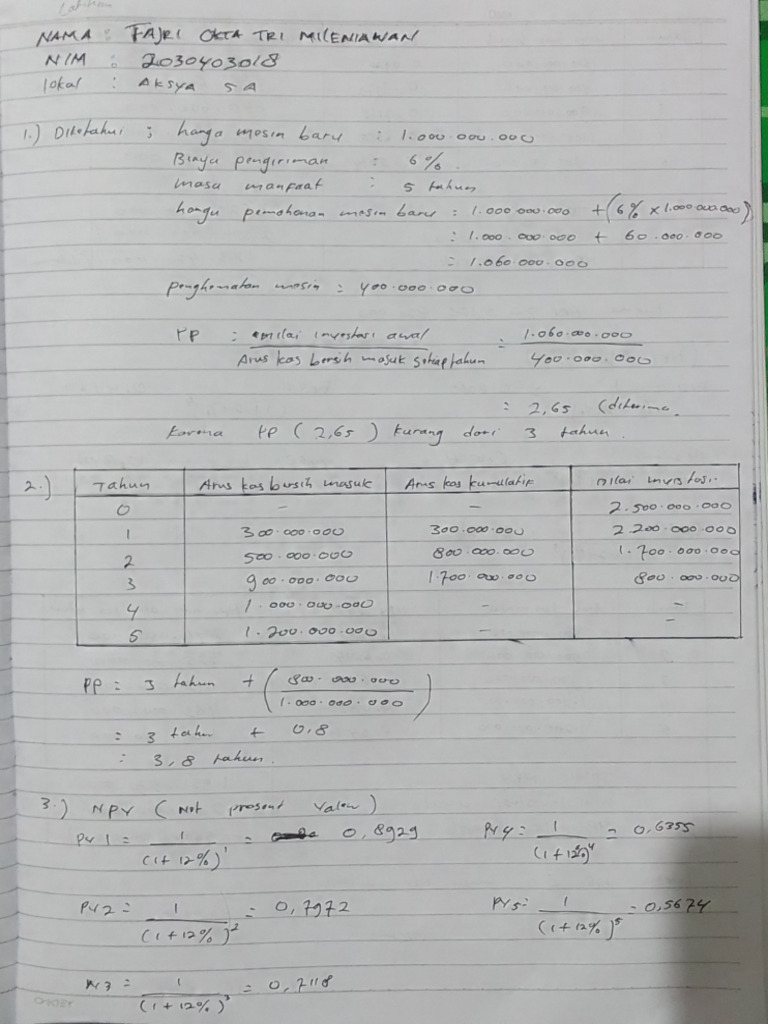 Latihan
NAMA : FAJRI OKTA TRI MILENIAWAN
NIM : 2030403018
lokal : AKSYA 5A
1.) Diketahui ; harga mesin baru : 1.000.000.000
Biaya pengiriman : 6%
masa manfaat : 5 tahun
harga pemohonan mesin baru : 1.000.000.000 + (6% x 1.000.000.000)
: 1.000.000.000 + 60.000.000
= 1.060.000.000
penghematan mesin : 400.000.000
PP : nilai investasi awal / Arus kas bersih masuk setiap tahun = 1.060.000.000 / 400.000.000
: 2,65 (diterima.
Karena PP (2,65) kurang dari 3 tahun.
2.) Tahun Arus kas bersih masuk Arus kas kumulatif nilai investasi
0 - - 2.500.000.000
1 300.000.000 300.000.000 2.200.000.000
2 500.000.000 800.000.000 1.700.000.000
3 900.000.000 1.700.000.000 800.000.000
4 1.000.000.000 - -
5 1.200.000.000 - -
PP = 3 tahun + (800.000.000 / 1.000.000.000)
= 3 tahun + 0,8
: 3,8 tahun.
3.) NPV (Net present Valeu)
PV 1 = 1 / (1+12%)¹ = 0,8929
PV 4 = 1 / (1+12%)⁴ = 0,6355
PV 2 = 1 / (1+12%)² = 0,7972
PV 5 = 1 / (1+12%)⁵ = 0,5674
PV 3 = 1 / (1+12%)³ = 0,7118